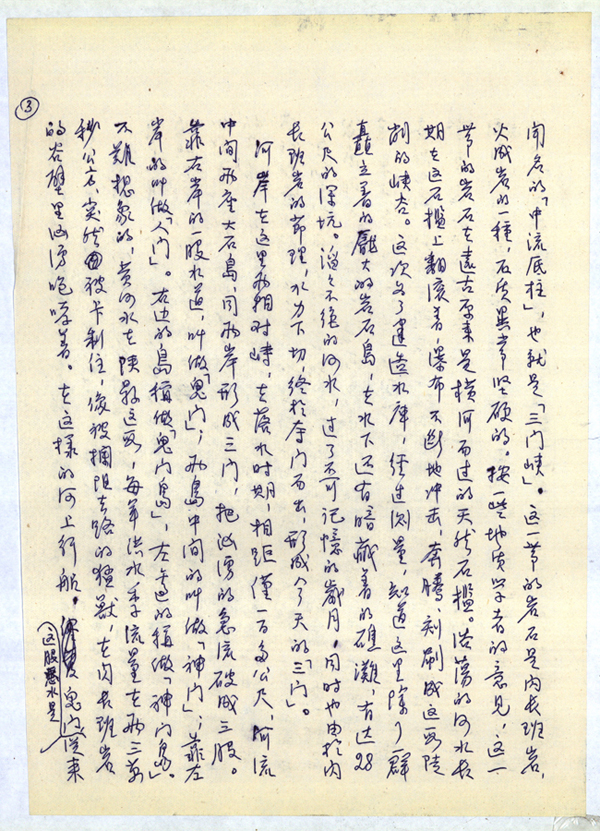 ③
闻名的「中流底柱」，也就是「三门峡」。这一带的岩石是闪长玢岩，
火成岩的一种，石质异常坚硬的。按一些地质学者的意见，这一
带的岩石在远古原来是横河而过的天然石槛。浩荡的河水长
期在这石槛上翻滚着，瀑布不断地冲击，奔腾，刻刷成这两陡
削的峡谷。这次为了建造水库，经过测量，知道这里除了一群
矗立着的龐大的岩石島，在水下还有暗藏着的礁灘，有达28
公尺的深坑。滔滔不绝的河水，过了不可记憶的歲月，同时也由於闪
长玢岩的節理，水力下切，终於夺门而出，形成今天的「三门」。
河岸在这里两相对峙，在落水时期，相距僅一百多公尺，河流
中间两座大石島，同两岸形成三门，把汹湧的急流破成三股。
靠右岸的一股水道，叫做「鬼门」；两島中间的叫做「神门」；靠左
岸的叫做「人门」。右边的島稱做「鬼门島」，左边的稱做「神门島」。
不難想象的，黄河水在陕縣这一段，每年洪水季流量在两三萬
秒公方，突然被卡制住，像被攔阻去路的猛獸，在闪长玢岩
的谷壁里汹湧咆哮着。在这樣的河上行船，鬼门从来
这股急水是